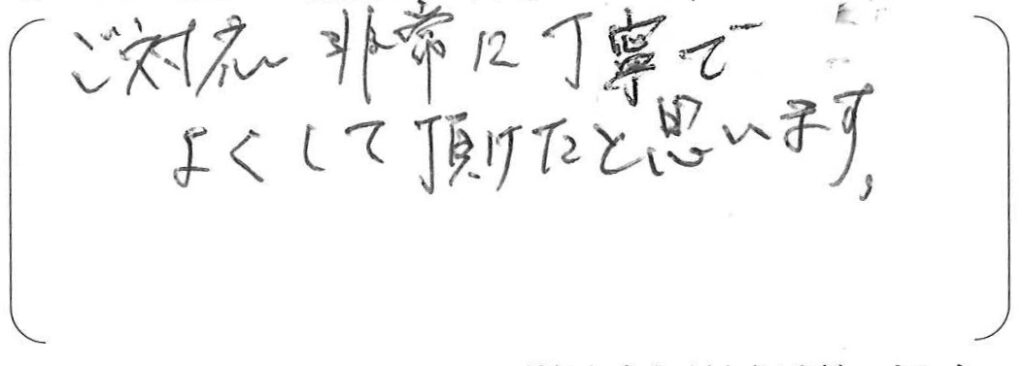 ご対応非常に丁寧で
よくして頂けたと思います。